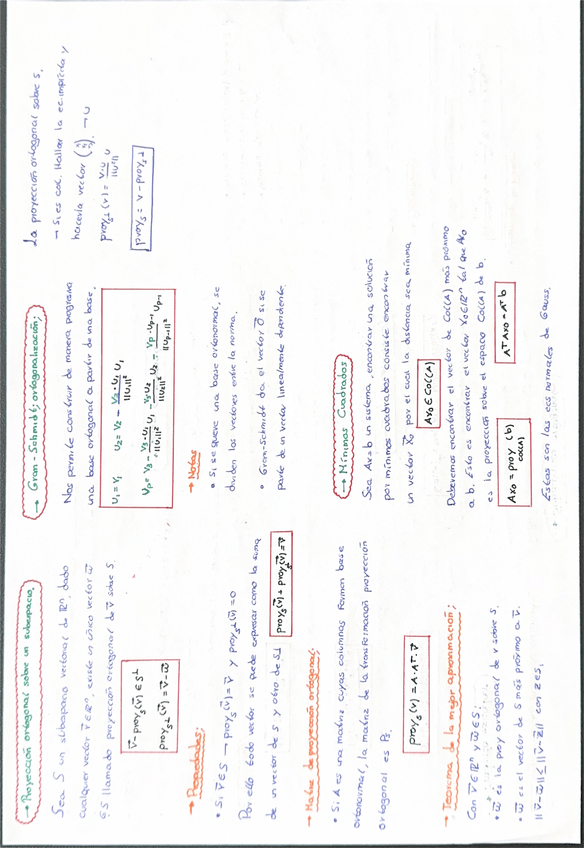 → Proyección ortogonal sobre un subespacio;
Sea S un subespacio vectorial de ℝⁿ, dado
cualquier vector v⃗ ∈ ℝⁿ, existe un único vector w⃗
∈ S llamado proyección ortogonal de v⃗ sobre S.
v⃗ - proy_S(v⃗) ∈ S⊥
proy_S⊥(v⃗) = v⃗ - w⃗
→ Propiedades:
• Si v⃗ ∈ S → proy_S(v⃗) = v⃗ y proy_S⊥(v⃗) = 0
Por ello todo vector se puede expresar como la suma
de un vector de S y otro de S⊥
proy_S(v⃗) + proy_S⊥(v⃗) = v⃗
→ Matriz de proyección ortogonal;
• Si A es una matriz cuyas columnas forman base
ortonormal, la matriz de la transformación proyección
ortogonal es P_S
proy_S(v) = A·Aᵀ·v⃗
→ Teorema de la mejor aproximación;
Con v⃗ ∈ ℝⁿ y w⃗ ∈ S.
• w⃗ es la proy ortogonal de v sobre S.
• w⃗ es el vector de S más próximo a v⃗.
||v⃗ - w⃗|| ≤ ||v⃗ - z⃗|| con z ∈ S.
→ Gram-Schmidt; ortogonalización;
Nos permite construir de manera progresiva
una base ortogonal a partir de una base.
u₁ = v₁ u₂ = v₂ - v₂·u₁/||u₁||² u₁
→ Notas
• Si se quiere una base ortonormal, se
dividen los vectores entre la norma.
• Gram-Schmidt da el vector 0⃗ si se
parte de un vector linealmente dependiente.
→ Mínimos Cuadrados
Sea Ax = b un sistema, encontrar una solución
por mínimos cuadrados consiste encontrar
un vector x⃗₀ por el cual la distancia sea mínima
Ax₀ ∈ Col(A)
Deberemos encontrar el vector de Col(A) más próximo
a b. Esto es encontrar el vector x₀ ∈ ℝⁿ tal que Ax₀
es la proyección sobre el espacio Col(A) de b.
Ax₀ = proy_col(A) (b)
AᵀAx₀ = Aᵀb
Estas son las ecs normales de Gauss.
La proyección ortogonal sobre S.
→ Si es col. Hallar la ec. implícita y
hacerla vector → u
proy_S⊥(v) = v·u/||u²|| u
proy_S = v - proy_S⊥